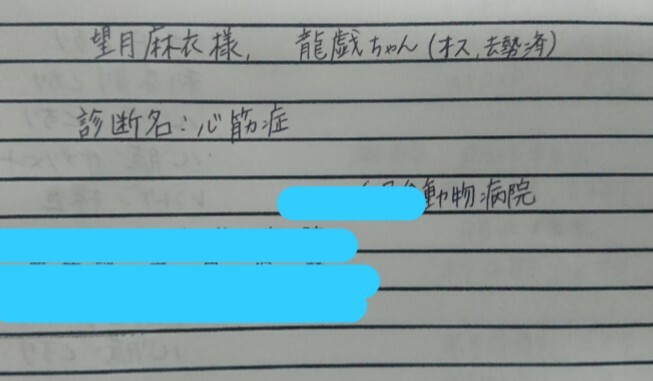 望月麻衣様, 龍戯ちゃん(オス,去勢済)
診断名:心筋症
動物病院